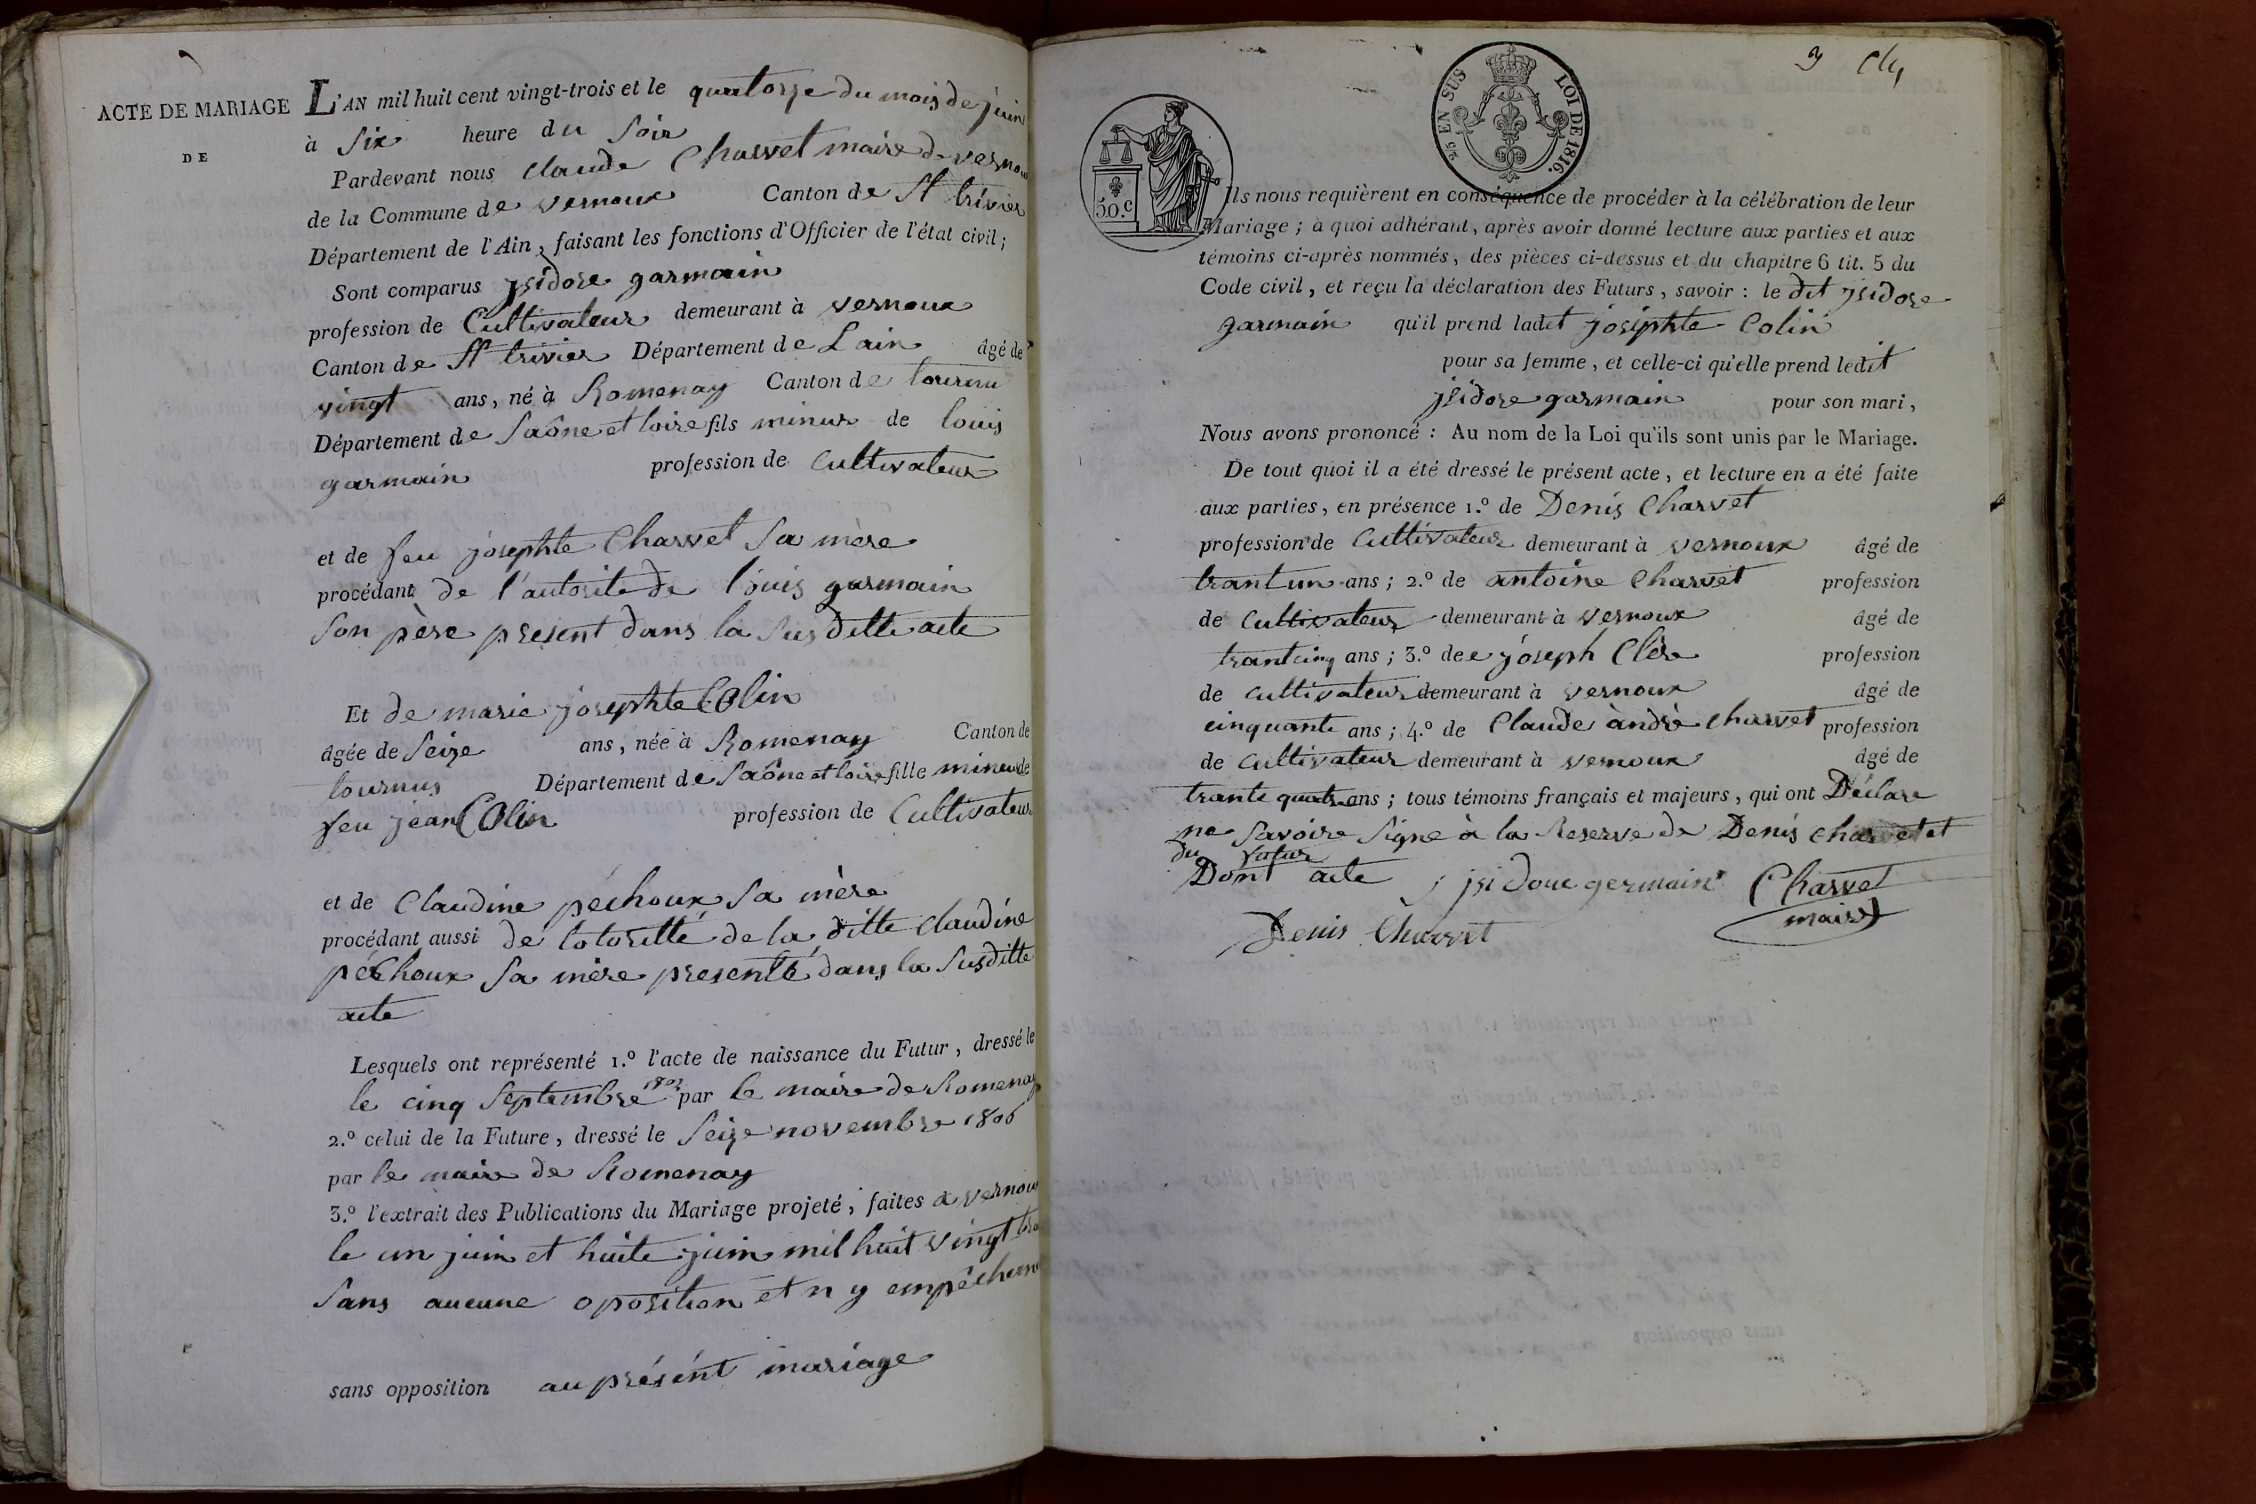 ACTE DE MARIAGE
DE
L'AN mil huit cent vingt-trois et le quatorze du mois de juin
à Six heure du Soir
Pardevant nous claude Charvet maire de vernou
de la Commune de vernoux Canton de St trivier
Département de l'Ain, faisant les fonctions d'Officier de l'état civil;
Sont comparus jsidore garmain
profession de Cultivateur demeurant à vernoux
Canton de St trivier Département de Lain âgé de
vingt ans, né à Romenay Canton de tournu
Département de Saône et loire fils mineur de louis
garmain profession de cultivateur
et de feu josephte Charvet Sa mère
procédant de l'autorite de louis garmain
Son père present dans la Susditte acte
Et de marie josephte Colin
âgée de Seize ans, née à Romenay Canton de
tournus Département de Saône et loire fille mineur de
feu jean Colin profession de Cultivateur
et de Claudine péchoux Sa mère
procédant aussi de lotoritté de la ditte claudine
péchoux Sa mère presenté dans la Susditte
acte
Lesquels ont représenté 1.º l'acte de naissance du Futur, dressé le
le cinq Septembre par le maire de Romenay
2.º celui de la Future, dressé le Seize novembre 1806
par le maire de Romenay
3.º l'extrait des Publications du Mariage projeté, faites a vernoux
le un juin et huite juin mil huit vingt
Sans aucune oposition et n y empêchem
sans opposition au présént mariage
3
25 EN SUS
LOI DE 1816.
50.c
Ils nous requièrent en conséquence de procéder à la célébration de leur
Mariage; à quoi adhérant, après avoir donné lecture aux parties et aux
témoins ci-après nommés, des pièces ci-dessus et du chapitre 6 tit. 5 du
Code civil, et reçu la déclaration des Futurs, savoir: le dit jsidore
garmain qu'il prend ladet josiphte Colin
pour sa femme, et celle-ci qu'elle prend ledit
jsidore garmain pour son mari,
Nous avons prononcé: Au nom de la Loi qu'ils sont unis par le Mariage.
De tout quoi il a été dressé le présent acte, et lecture en a été faite
aux parties, en présence 1.º de Denis Charvet
profession de Cultivateur demeurant à vernoux âgé de
trantun ans; 2.º de antoine Charvet profession
de Cultivateur demeurant à vernoux âgé de
trantcinq ans; 3.º dee joseph Clér profession
de cultivateur demeurant à vernoux âgé de
cinquante ans; 4.º de Claude àndré charvet profession
de cultivateur demeurant à vernoux âgé de
trante quatre ans; tous témoins français et majeurs, qui ont Déclare
ne Savoire Signe à la Reserve de Denis charvet et
du futur
Dont acte jsidoue germain Charvet
maire
Denis Charvet